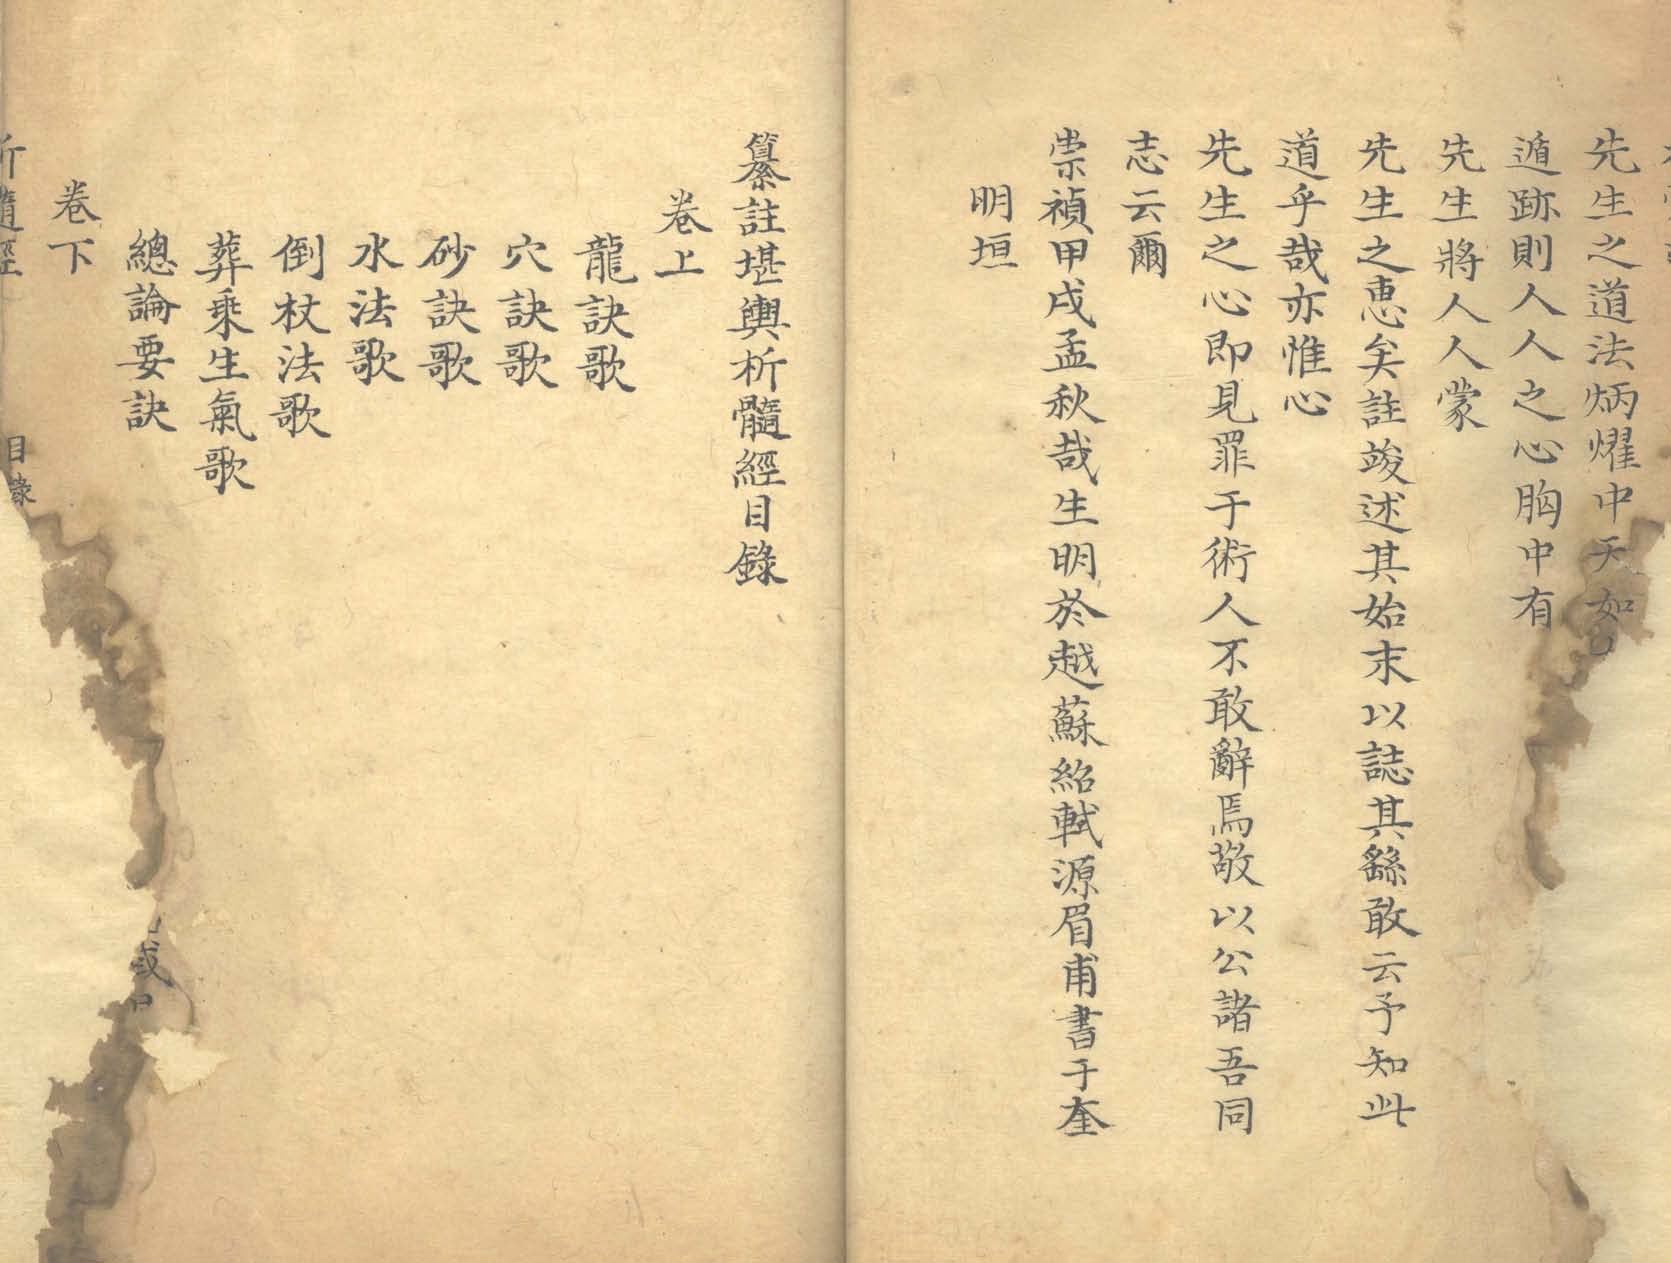 先生之道法炳燿中天如
遁跡則人人之心胸中有
先生將人人蒙
先生之恵矣註竣述其始末以誌其繇敢云予知此
道乎哉亦惟心
先生之心即見罪于術人不敢辭焉敬以公諸吾同
志云爾
崇禎甲戌孟秋哉生明於越蘇紹軾源眉甫書于奎
明垣
纂註堪輿析髓經目錄
卷上
龍訣歌
穴訣歌
砂訣歌
水法歌
倒杖法歌
葬乘生氣歌
總論要訣
卷下
析髓經
目錄